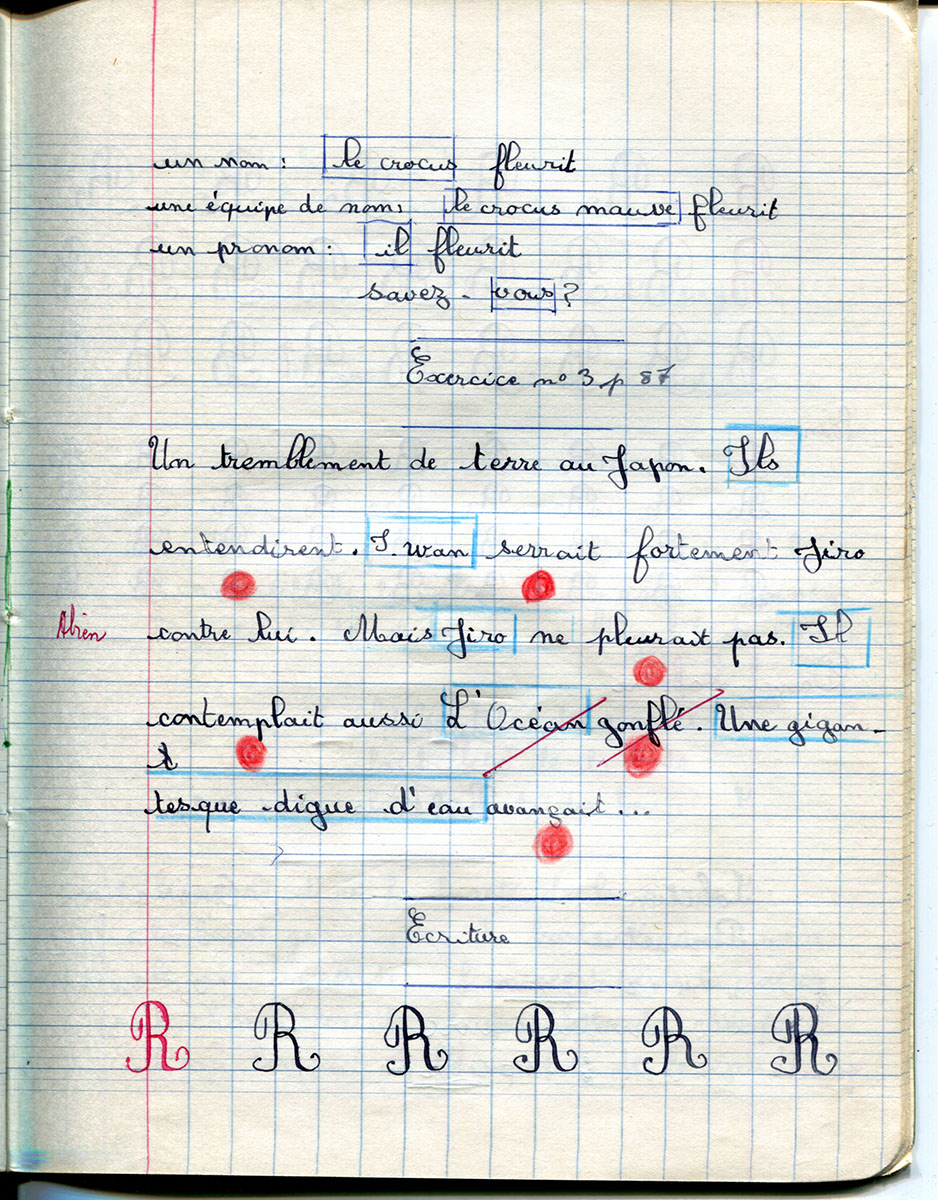 un nom : le crocus fleurit
une équipe de nom : le crocus mauve fleurit
un pronom : il fleurit
savez-vous ?
Exercice n° 3 p 87
Un tremblement de terre au Japon. Ils
entendirent. I.wan serrait fortement Jiro
contre lui. Mais Jiro ne pleurait pas. Il
contemplait aussi L'Océan gonflé. Une gigan-
t
tesque digue d'eau avançait...
Ecriture
R R R R R R